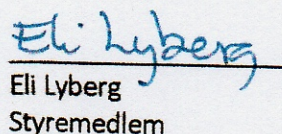 Eli Lyberg
Eli Lyberg
Styremedlem